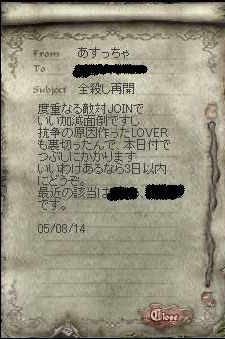 From あすっちゃ
To
Subject 全殺し再開
度重なる敵対JOINで
いい加減面倒ですし
抗争の原因作ったLOVER
も裏切ったんで、本日付で
つぶしにかかります
いいわけあるなら3日以内
にどうぞ。
最近の該当は 、
です。
05/08/14
Close